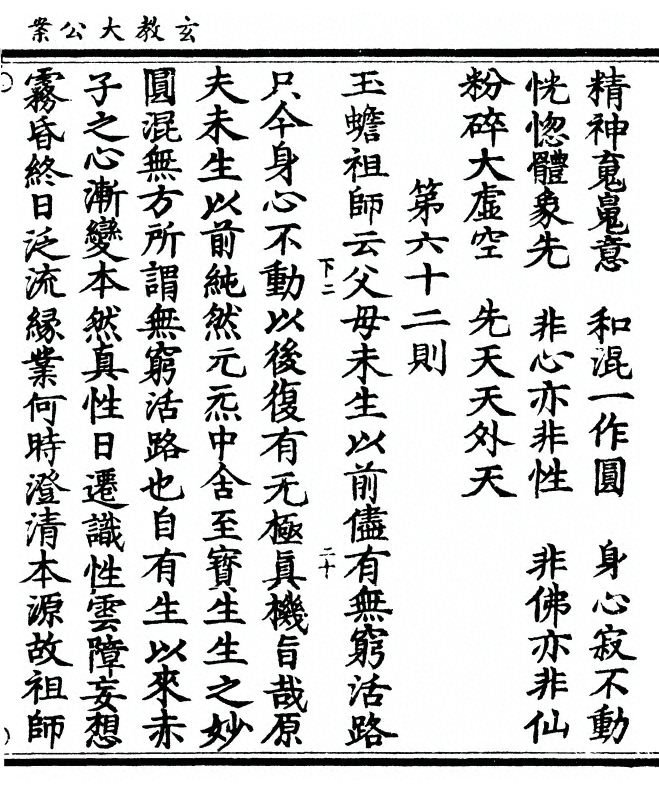 玄教大公案
精神䰟鬼意　和混一作圓　身心寂不動
恍惚體象先　非心亦非性　非佛亦非仙
粉碎大虛空　先天天外天
第六十二則
玉蟾祖師云父母未生以前儘有無窮活路
下二　二十
只今身心不動以後復有无極眞機旨哉原
夫未生以前純然元炁中含至寳生生之妙
圓混無方所謂無窮活路也自有生以來赤
子之心漸變本然真性日遷識性雲障妄想
霧昏終日泛流緣業何時澄清本源故祖師